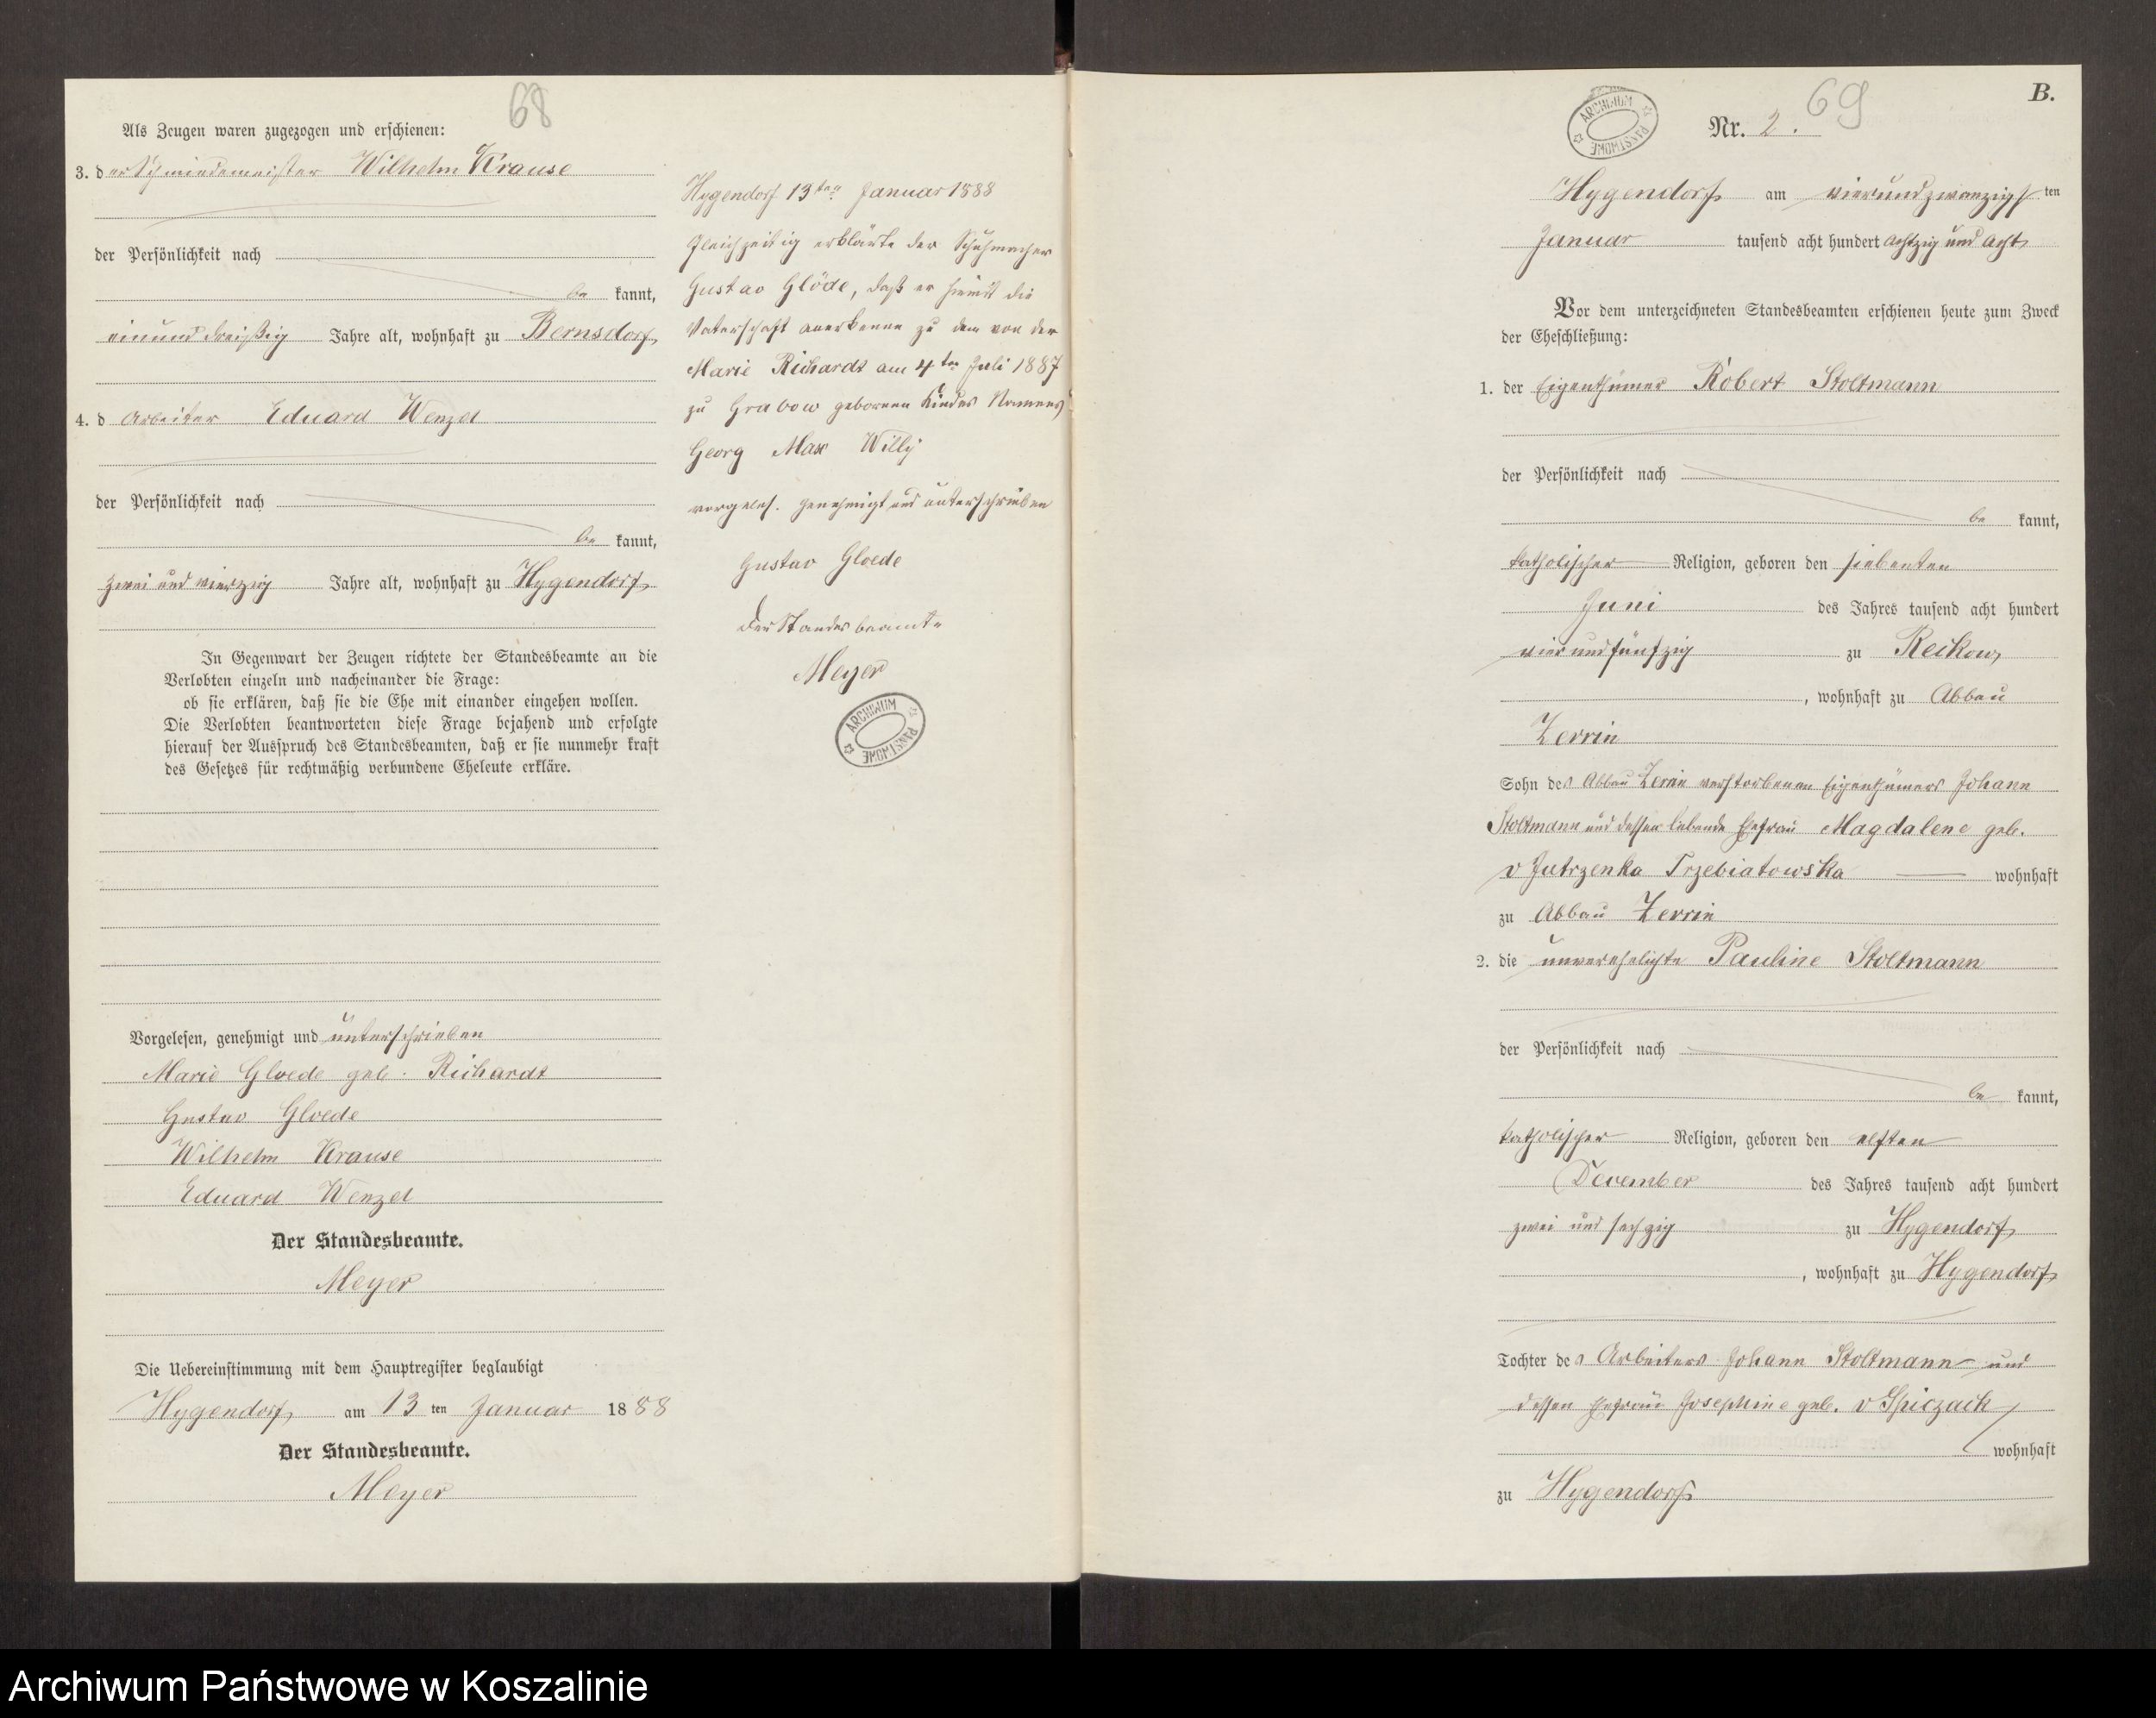 68
Als Zeugen waren zugezogen und erschienen:
3. der Schmiedemeister Wilhelm Krause
der Persönlichkeit nach
be kannt,
einunddreißig Jahre alt, wohnhaft zu Bernsdorf
4. d Arbeiter Eduard Wenzel
der Persönlichkeit nach
be kannt,
zwei und vierzig Jahre alt, wohnhaft zu Hygendorf
In Gegenwart der Zeugen richtete der Standesbeamte an die
Verlobten einzeln und nacheinander die Frage:
ob sie erklären, daß sie die Ehe mit einander eingehen wollen.
Die Verlobten beantworteten diese Frage bejahend und erfolgte
hierauf der Ausspruch des Standesbeamten, daß er sie nunmehr kraft
des Gesetzes für rechtmäßig verbundene Eheleute erkläre.
Vorgelesen, genehmigt und unterschrieben
Marie Gloede geb. Richardt
Gustav Gloede
Wilhelm Krause
Eduard Wenzel
Der Standesbeamte.
Meyer
Die Uebereinstimmung mit dem Hauptregister beglaubigt
Hygendorf am 13 ten Januar 1888
Der Standesbeamte.
Meyer
Hygendorf 13ten Januar 1888
Gleichzeitig erklärte der Schuhmacher
Gustav Glöde, daß er hiermit die
Vaterschaft anerkenne zu dem von der
Marie Richardt am 4ten Juli 1887
zu Grabow geborenen Kindes Namens
Georg Max Willy
vorgeles. genehmigt und unterschrieben
Gustav Gloede
Der Standesbeamte
Meyer
ARCHIWUM PAŃSTWOWE
B.
ARCHIWUM PAŃSTWOWE
Nr. 2. 69
Hygendorf am vierundzwanzigs ten
Januar tausend acht hundert achtzig und acht
Vor dem unterzeichneten Standesbeamten erschienen heute zum Zweck
der Eheschließung:
1. der Eigenthümer Robert Stoltmann
der Persönlichkeit nach
be kannt,
katholischer Religion, geboren den siebenten
Juni des Jahres tausend acht hundert
vierundfünfzig zu Reckow,
, wohnhaft zu Abbau
Zerrin
Sohn des Abbau Zerrin verstorbenen Eigenthümers Johann
Stoltmann und dessen lebende Ehefrau Magdalene geb.
v Jutrzenka Trzebiatowska wohnhaft
zu Abbau Zerrin
2. die unverehelichte Pauline Stoltmann
der Persönlichkeit nach
be kannt,
katholischer Religion, geboren den elften
December des Jahres tausend acht hundert
zwei und sechzig zu Hygendorf
, wohnhaft zu Hygendorf
Tochter des Arbeiters Johann Stoltmann und
dessen Ehefrau Josephine geb. v Spiczack
wohnhaft
zu Hygendorf
Archiwum Państwowe w Koszalinie